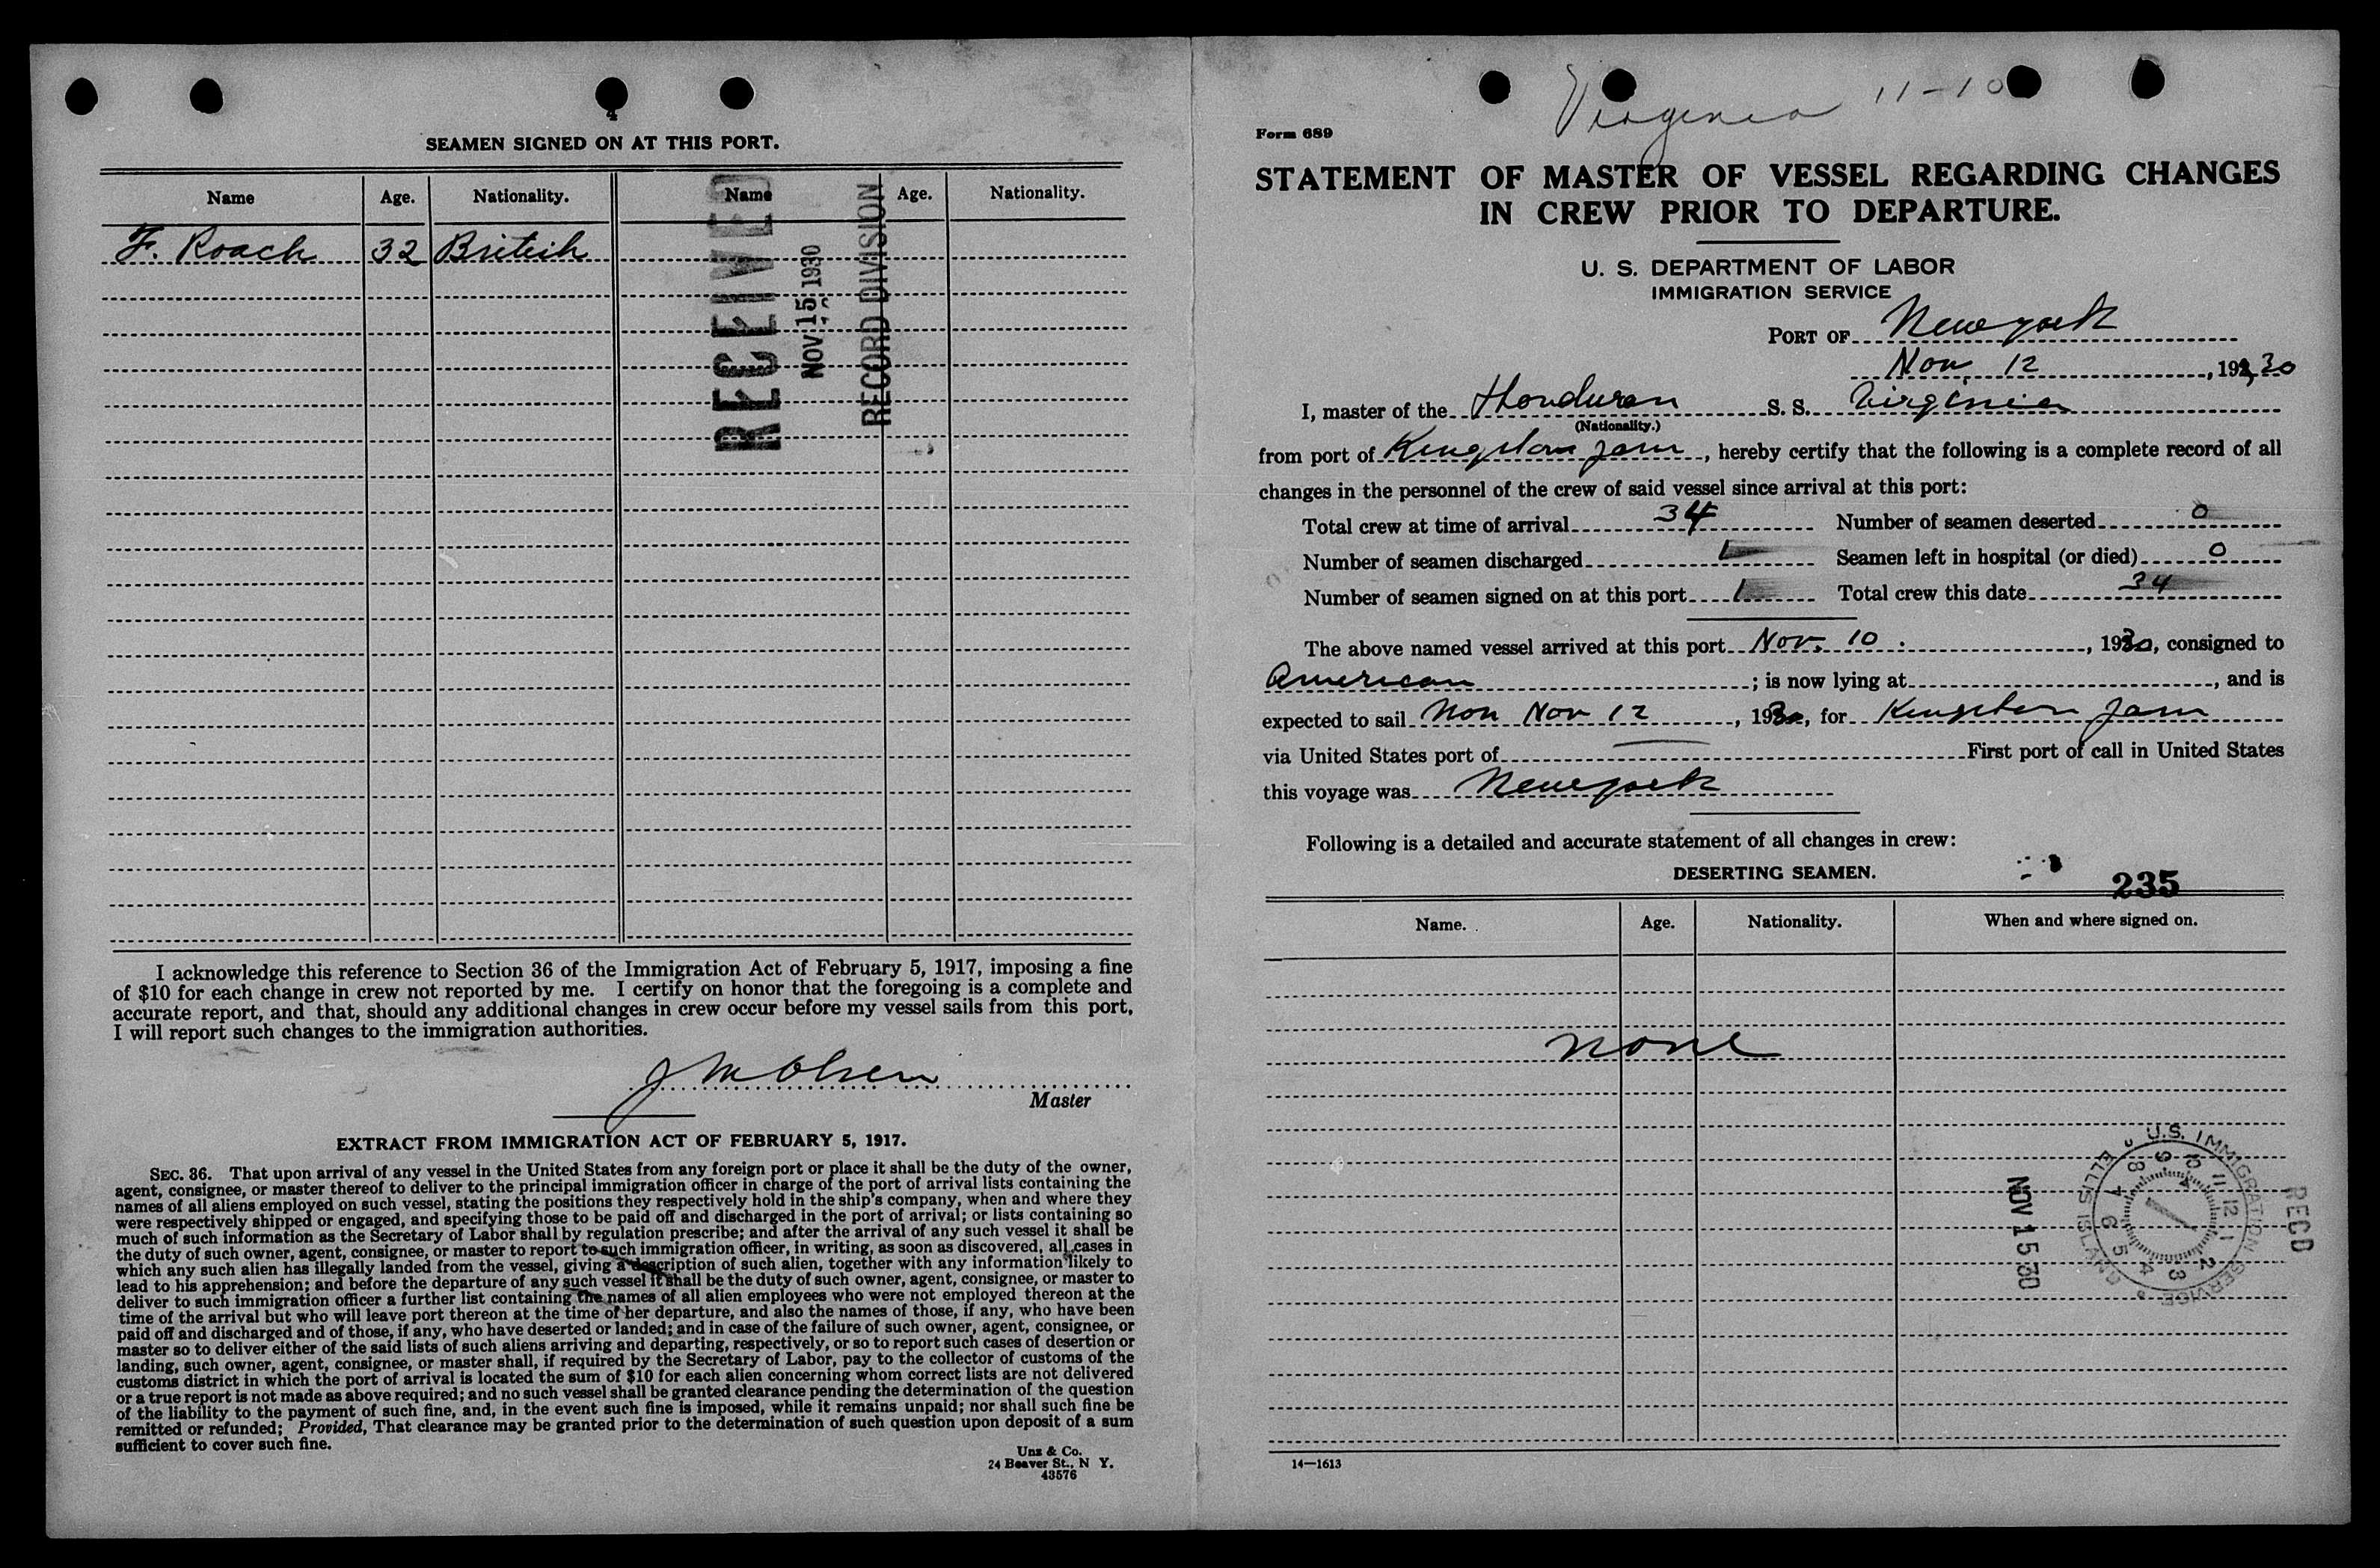 4
SEAMEN SIGNED ON AT THIS PORT.
Name Age. Nationality. Name Age. Nationality.
F. Roach 32 British
RECEIVED
NOV 15 1930
RECORD DIVISION
I acknowledge this reference to Section 36 of the Immigration Act of February 5, 1917, imposing a fine
of $10 for each change in crew not reported by me. I certify on honor that the foregoing is a complete and
accurate report, and that, should any additional changes in crew occur before my vessel sails from this port,
I will report such changes to the immigration authorities.
J M Olsen
Master
EXTRACT FROM IMMIGRATION ACT OF FEBRUARY 5, 1917.
SEC. 36. That upon arrival of any vessel in the United States from any foreign port or place it shall be the duty of the owner,
agent, consignee, or master thereof to deliver to the principal immigration officer in charge of the port of arrival lists containing the
names of all aliens employed on such vessel, stating the positions they respectively hold in the ship's company, when and where they
were respectively shipped or engaged, and specifying those to be paid off and discharged in the port of arrival; or lists containing so
much of such information as the Secretary of Labor shall by regulation prescribe; and after the arrival of any such vessel it shall be
the duty of such owner, agent, consignee, or master to report to such immigration officer, in writing, as soon as discovered, all cases in
which any such alien has illegally landed from the vessel, giving a description of such alien, together with any information likely to
lead to his apprehension; and before the departure of any such vessel it shall be the duty of such owner, agent, consignee, or master to
deliver to such immigration officer a further list containing the names of all alien employees who were not employed thereon at the
time of the arrival but who will leave port thereon at the time of her departure, and also the names of those, if any, who have been
paid off and discharged and of those, if any, who have deserted or landed; and in case of the failure of such owner, agent, consignee, or
master so to deliver either of the said lists of such aliens arriving and departing, respectively, or so to report such cases of desertion or
landing, such owner, agent, consignee, or master shall, if required by the Secretary of Labor, pay to the collector of customs of the
customs district in which the port of arrival is located the sum of $10 for each alien concerning whom correct lists are not delivered
or a true report is not made as above required; and no such vessel shall be granted clearance pending the determination of the question
of the liability to the payment of such fine, and, in the event such fine is imposed, while it remains unpaid; nor shall such fine be
remitted or refunded; Provided, That clearance may be granted prior to the determination of such question upon deposit of a sum
sufficient to cover such fine.
Unz & Co.
24 Beaver St., N Y.
43576
Virginia 11-10
Form 689
STATEMENT OF MASTER OF VESSEL REGARDING CHANGES
IN CREW PRIOR TO DEPARTURE.
U. S. DEPARTMENT OF LABOR
IMMIGRATION SERVICE
PORT OF Newyork
Nov. 12, 1930
I, master of the Honduran S. S. Virginia
(Nationality.)
from port of Kingston Jam, hereby certify that the following is a complete record of all
changes in the personnel of the crew of said vessel since arrival at this port:
Total crew at time of arrival 34 Number of seamen deserted 0
Number of seamen discharged 1 Seamen left in hospital (or died) 0
Number of seamen signed on at this port 1 Total crew this date 34
The above named vessel arrived at this port Nov. 10, 1930, consigned to
American; is now lying at, and is
expected to sail Nov 12, 1930, for Kingston Jam
via United States port of — First port of call in United States
this voyage was Newyork
Following is a detailed and accurate statement of all changes in crew:
DESERTING SEAMEN.
235
Name. Age. Nationality. When and where signed on.
none
U.S. IMMIGRATION SERVICE ELLIS ISLAND
1 2 3 4 5 6 7 8 9 10 11 12
RECD
NOV 15 30
14—1613